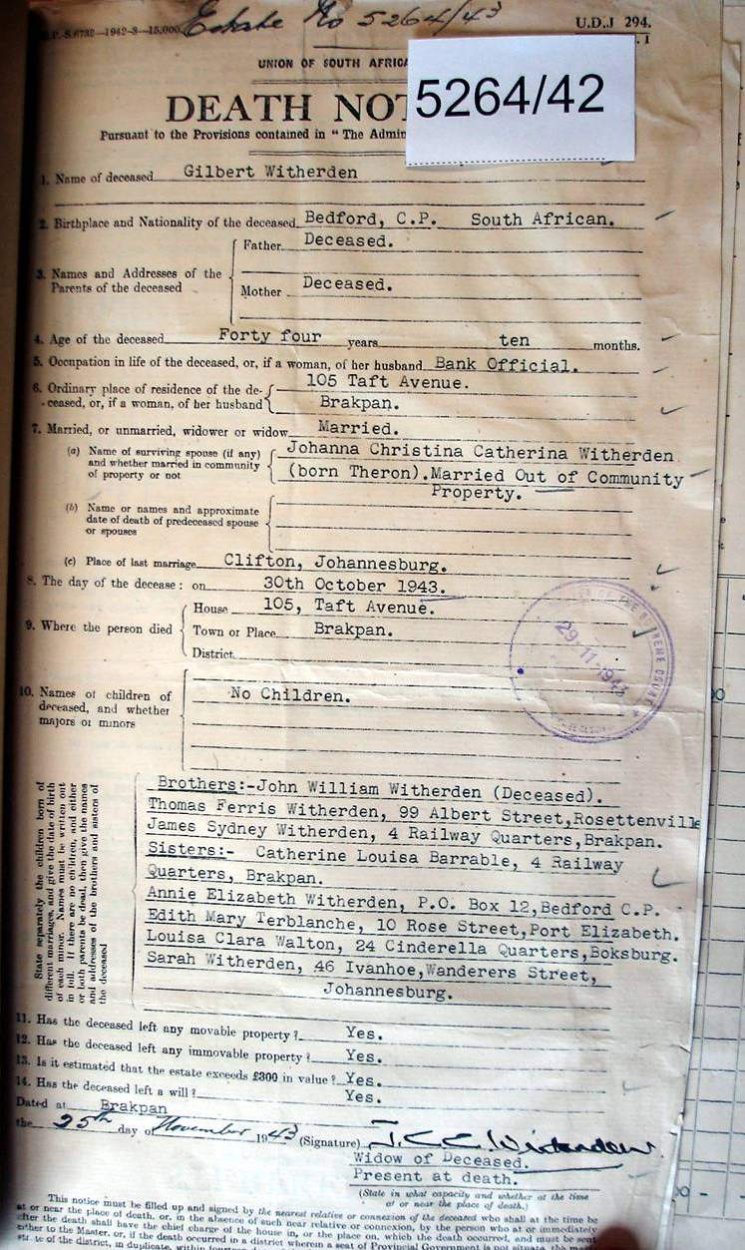 Estate No 5264/43
U.D.J 294.
5264/42
UNION OF SOUTH AFRICA
DEATH NOT
Pursuant to the Provisions contained in "The Admin
1. Name of deceased Gilbert Witherden
2. Birthplace and Nationality of the deceased Bedford, C.P. South African.
3. Names and Addresses of the Parents of the deceased
Father Deceased.
Mother Deceased.
4. Age of the deceased Forty four years ten months.
5. Occupation in life of the deceased, or, if a woman, of her husband Bank Official.
6. Ordinary place of residence of the de- 105 Taft Avenue.
ceased, or, if a woman, of her husband Brakpan.
7. Married, or unmarried, widower or widow Married.
(a) Name of surviving spouse (if any) Johanna Christina Catherina Witherden
and whether married in community (born Theron).Married Out of Community
of property or not Property.
(b) Name or names and approximate
date of death of predeceased spouse
or spouses
(c) Place of last marriage Clifton, Johannesburg.
8. The day of the decease: on 30th October 1943.
9. Where the person died
House 105, Taft Avenue.
Town or Place Brakpan.
District
29-11-1943
10. Names of children of No Children.
deceased, and whether
majors or minors
State separately the children born of
different marriages, and give the date of birth
of each minor. Names must be written out
in full. If there are no children, and either
or both parents be dead, then give the names
and addresses of the brothers and sisters of
the deceased
Brothers:-John William Witherden (Deceased).
Thomas Ferris Witherden, 99 Albert Street,Rosettenville
James Sydney Witherden, 4 Railway Quarters,Brakpan.
Sisters:- Catherine Louisa Barrable, 4 Railway
Quarters, Brakpan.
Annie Elizabeth Witherden, P.O. Box 12,Bedford C.P.
Edith Mary Terblanche, 10 Rose Street,Port Elizabeth.
Louisa Clara Walton, 24 Cinderella Quarters,Boksburg.
Sarah Witherden, 46 Ivanhoe,Wanderers Street,
Johannesburg.
11. Has the deceased left any movable property? Yes.
12. Has the deceased left any immovable property? Yes.
13. Is it estimated that the estate exceeds £300 in value? Yes.
14. Has the deceased left a will? Yes.
Dated at Brakpan
the 25th day of November 1943 (Signature) J.C.C. Witherden
Widow of Deceased.
Present at death.
(State in what capacity and whether at the time
of or near the place of death.)
This notice must be filled up and signed by the nearest relative or connexion of the deceased who shall at the time be
at or near the place of death, or, in the absence of such near relative or connexion, by the person who at or immediately
after the death shall have the chief charge of the house in, or the place on, which the death occurred, and must be sent
either to the Master, or, if the death occurred in a district wherein a seat of Provincial Government is not situate,